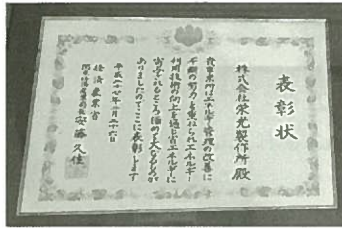 表彰状
株式会社栄光製作所殿
貴事業所はエネルギー管理の改善に
不断の努力を重ねられエネルギー
利用技術の向上を通じ省エネルギーに
寄与されるところ極めて大なるものが
ありましたのでここに表彰します
平成二十七年二月二十六日
経済産業省
関東経済産業局長 安藤久佳